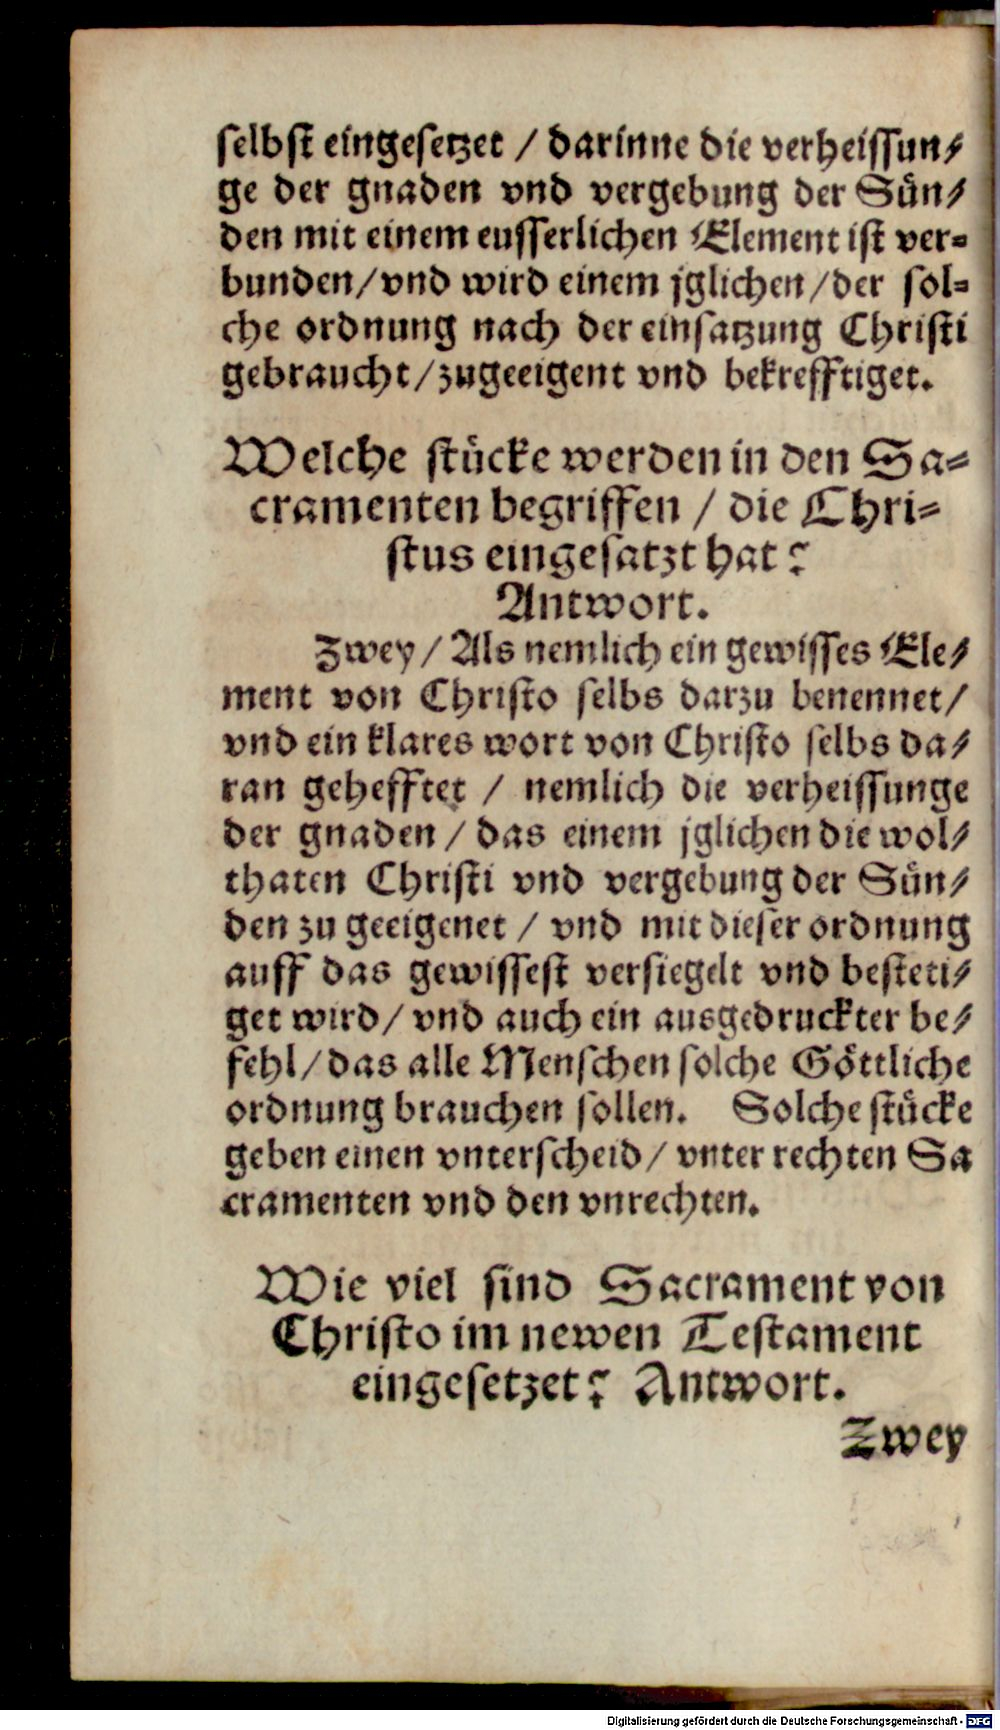 selbst eingesetzet / darinne die verheissun⸗
ge der gnaden vnd vergebung der Sün⸗
den mit einem eusserlichen Element ist ver⸗
bunden/vnd wird einem jglichen/der sol⸗
che ordnung nach der einsatzung Christi
gebraucht/zugeeigent vnd bekrefftiget.
Welche stücke werden in den Sa⸗
cramenten begriffen / die Chri⸗
stus eingesatzt hat?
Antwort.
Zwey/ Als nemlich ein gewisses Ele⸗
ment von Christo selbs darzu benennet/
vnd ein klares wort von Christo selbs da⸗
ran gehefftet / nemlich die verheissunge
der gnaden / das einem jglichen die wol⸗
thaten Christi vnd vergebung der Sün⸗
den zu geeigenet / vnd mit dieser ordnung
auff das gewissest versiegelt vnd besteti⸗
get wird/ vnd auch ein ausgedruckter be⸗
fehl/das alle Menschen solche Göttliche
ordnung brauchen sollen. Solche stücke
geben einen vnterscheid/ vnter rechten Sa
cramenten vnd den vnrechten.
Wie viel sind Sacrament von
Christo im newen Testament
eingesetzet? Antwort.
Zwey
Digitalisierung gefördert durch die Deutsche Forschungsgemeinschaft - DFG